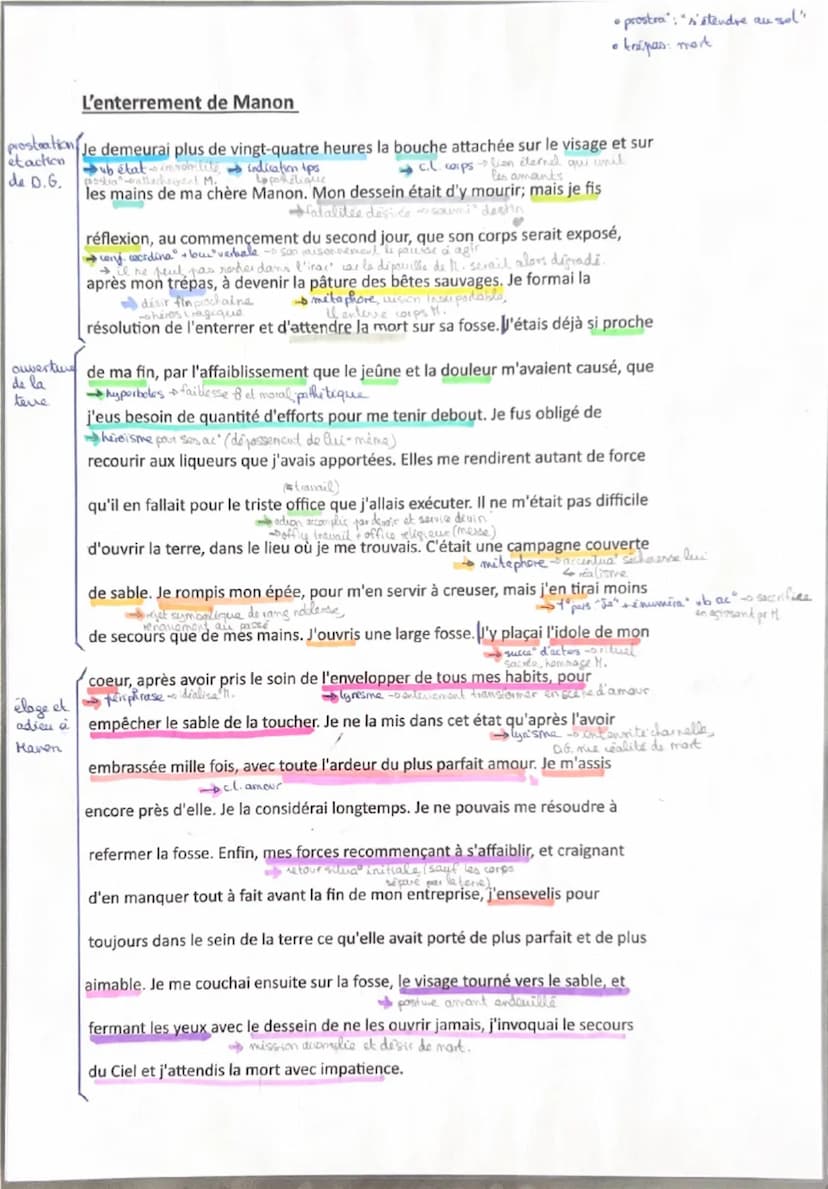 • prostra°: "s'étendre au sol"
• trépas: mort
L'enterrement de Manon
prostration et action de D.G.
Je demeurai plus de vingt-quatre heures la bouche attachée sur le visage et sur
→ vb état → immobilité, → indication tps → c.l. corps → lien éternel qui unit
prostra° → attachement M. ↳ pathétique les amants
les mains de ma chère Manon. Mon dessein était d'y mourir; mais je fis
→ fatalité désirée → soumi° destin
réflexion, au commencement du second jour, que son corps serait exposé,
→ conj. coordina° + verbale → son raisonnement le pousse à agir
→ il ne peut pas rester dans l'irra° car la dépouille de M. serait alors dégradé.
après mon trépas, à devenir la pâture des bêtes sauvages. Je formai la
→ désir fin prochaine → métaphore, vision insupportable,
→ héros tragique il enterre corps M.
résolution de l'enterrer et d'attendre la mort sur sa fosse. J'étais déjà si proche
ouverture de la terre
de ma fin, par l'affaiblissement que le jeûne et la douleur m'avaient causé, que
→ hyperboles → faiblesse et moral, pathétique
j'eus besoin de quantité d'efforts pour me tenir debout. Je fus obligé de
→ héroïsme par ses ac° (dépassement de lui-même)
recourir aux liqueurs que j'avais apportées. Elles me rendirent autant de force
(= travail)
qu'il en fallait pour le triste office que j'allais exécuter. Il ne m'était pas difficile
→ action accomplie par devoir et service divin
→ office travail + office religieux (messe)
d'ouvrir la terre, dans le lieu où je me trouvais. C'était une campagne couverte
→ métaphore → accentua° sécheresse lieu
↳ réalisme
de sable. Je rompis mon épée, pour m'en servir à creuser, mais j'en tirai moins
→ rejet symbolique de rang noblesse, → 1° pers "je" + énuméra° vb ac° → sacrifice
renoncement au passé en agissant pr M
de secours que de mes mains. J'ouvris une large fosse. J'y plaçai l'idole de mon
→ succe° d'actes → rituel
sacrée, hommage M.
élage et adieu à Manon
coeur, après avoir pris le soin de l'envelopper de tous mes habits, pour
→ périphrase → idéalise M. → lyrisme → enterrement transformer en scène d'amour
empêcher le sable de la toucher. Je ne la mis dans cet état qu'après l'avoir
→ lyrisme → intensité charnelle,
D.G. nie réalité de mort
embrassée mille fois, avec toute l'ardeur du plus parfait amour. Je m'assis
→ c.l. amour
encore près d'elle. Je la considérai longtemps. Je ne pouvais me résoudre à
refermer la fosse. Enfin, mes forces recommençant à s'affaiblir, et craignant
→ retour situa° initiale (sauf les corps
séparé par la terre)
d'en manquer tout à fait avant la fin de mon entreprise, j'ensevelis pour
toujours dans le sein de la terre ce qu'elle avait porté de plus parfait et de plus
aimable. Je me couchai ensuite sur la fosse, le visage tourné vers le sable, et
→ posture amant endeuillé
fermant les yeux avec le dessein de ne les ouvrir jamais, j'invoquai le secours
→ mission accomplie et désir de mort.
du Ciel et j'attendis la mort avec impatience.